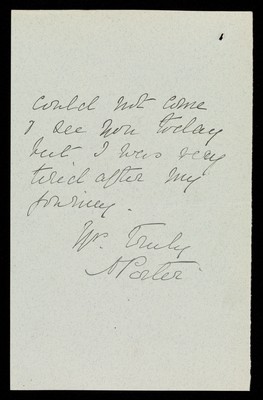 could not come
& see you today
but I was very
tired after my
journey.
Yrs. Truly
A Porter